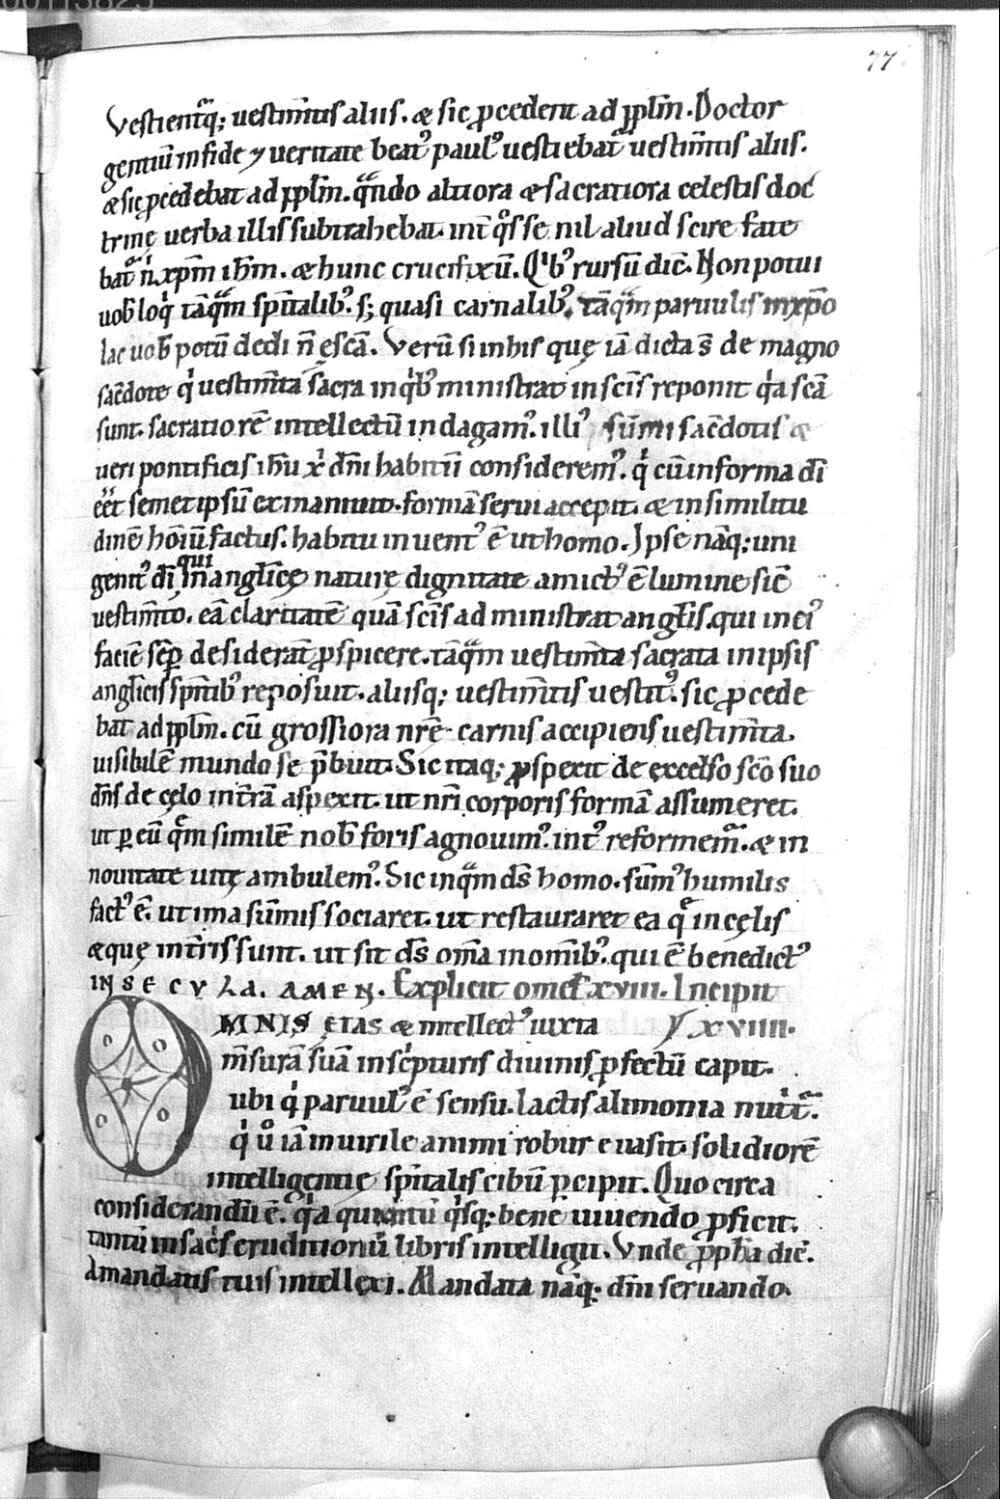 00113825
77
Vestient᷑q; uestim̅tis aliis. ⁊ sic p̱cedent ad pp̅lm. Doctor
gentiū in fide ⁊ ueritate beat᷒ paul᷒ uestiebat᷑ uestim̅tis aliis.
⁊ sic p̱cedebat ad pp̅lm. qn̅do altiora ⁊ sacratiora celestis doc
trinę uerba illis subtrahebat. int̅ qͦs se nil aliud scire fate
bat᷑ n̅ xp̅m ih̅m. ⁊ hunc crucifixū. Qͥb᷒ rursū dic̅. Non potui
uob̅ loqͥ tāqᷓm sp̅italib᷒. s; quasi carnalib᷒. tāqᷓm paruulis in xp̅o
lac uob̅ potū dedi n̅ escā. Verū si in his quę iā dicta s̅ de magno
sac̅dote qͥ uestim̅ta sacra in qͥb᷒ ministrat in sc̅is reponit qͥa sc̅a
sunt. sacratiorē intellectū indagam᷒. illi᷒ sūmi sac̅dotis ⁊
ueri pontificis ih̅u xͥ dn̅i habitū considerem᷒. qͥ cū in forma dī
eēt semetipsū exinaniuit. formā serui accepit. ⁊ in similitu
dinē hoīū factus. habitu inuent᷒ ē ut homo. Ipse nāq; uni
genit᷒ dī qui in angl̅icę naturę dignitate amict᷒ ē lumine sic̅
uestim̅to. eā claritatē quā sc̅is administrat angl̅is. qui in ei᷒
faciē sēp desiderat̅ p̱spicere. tāqᷓm uestim̅ta sacrata in ipsis
angl̅icis sp̅itib᷒ reposuit. aliisq; uestim̅tis uestit᷒. sic p̱cede
bat ad pp̅lm. cū grossiora nr̅ę carnis accipiens uestim̅ta.
uisibilē mundo se p̅buit. Sic itaq; p̱spexit de excelso sc̅o suo
dn̅s de cęlo in t̅rā aspexit. ut nr̅i corporis formā assumeret.
ut p̱ eū qͤm similē nob̅ foris agnouim᷒. int᷒ reformem᷑. ⁊ in
nouitate uitę ambulem᷒. Sic inqᷓm ds̅ homo. sūm᷒ humilis
fact᷒ ē. ut ima sūmis sociaret. ut restauraret ea qͤ in cęlis
⁊ quę in t̅ris sunt. ut sit ds̅ om̅a in om̅ib᷒. qui ē benedict᷒
IN SECULA. AMEN. Explicit omel̅ xviii. Incipit
OMNIS ETAS ⁊ intellect᷒ iuxta xviiii.
m̅surā suā in scͥpturis diuinis p̱fectū capit.
ubi qͥ paruul᷒ ē sensu. lactis alimonia nutͥt᷑.
qͥ u̅ iā in uirile animi robur euasit. solidiorē
intelligentię sp̅italis cibū p̱cipit. Quo circa
considerandū ē. qͥa quantū qͥsq; bene uiuendo p̱ficit.
tantū in sac̅s eruditionū libris intelligit. Vnde p̱ph̅a dic̅.
A mandatis tuis intellexi. Mandata nāq; dn̅i seruando.